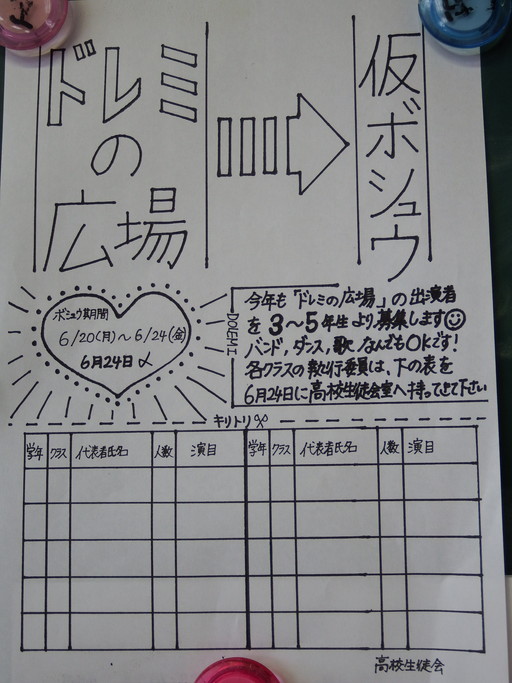 ドレミの広場
仮ボシュウ
ボシュウ期間
6/20(月)〜6/24(金)
6月24日〆
DOIGHI
今年も「ドレミの広場」の出演者
を3〜5年生より募集します
バンド,ダンス,歌,なんでもOKです!
各クラスの執行委員は、下の表を
6月24日に高校生徒会室へ持ってきて下さい
キリトリ
学年 クラス 代表者氏名 人数 演目 学年 クラス 代表者氏名 人数 演目
高校生徒会